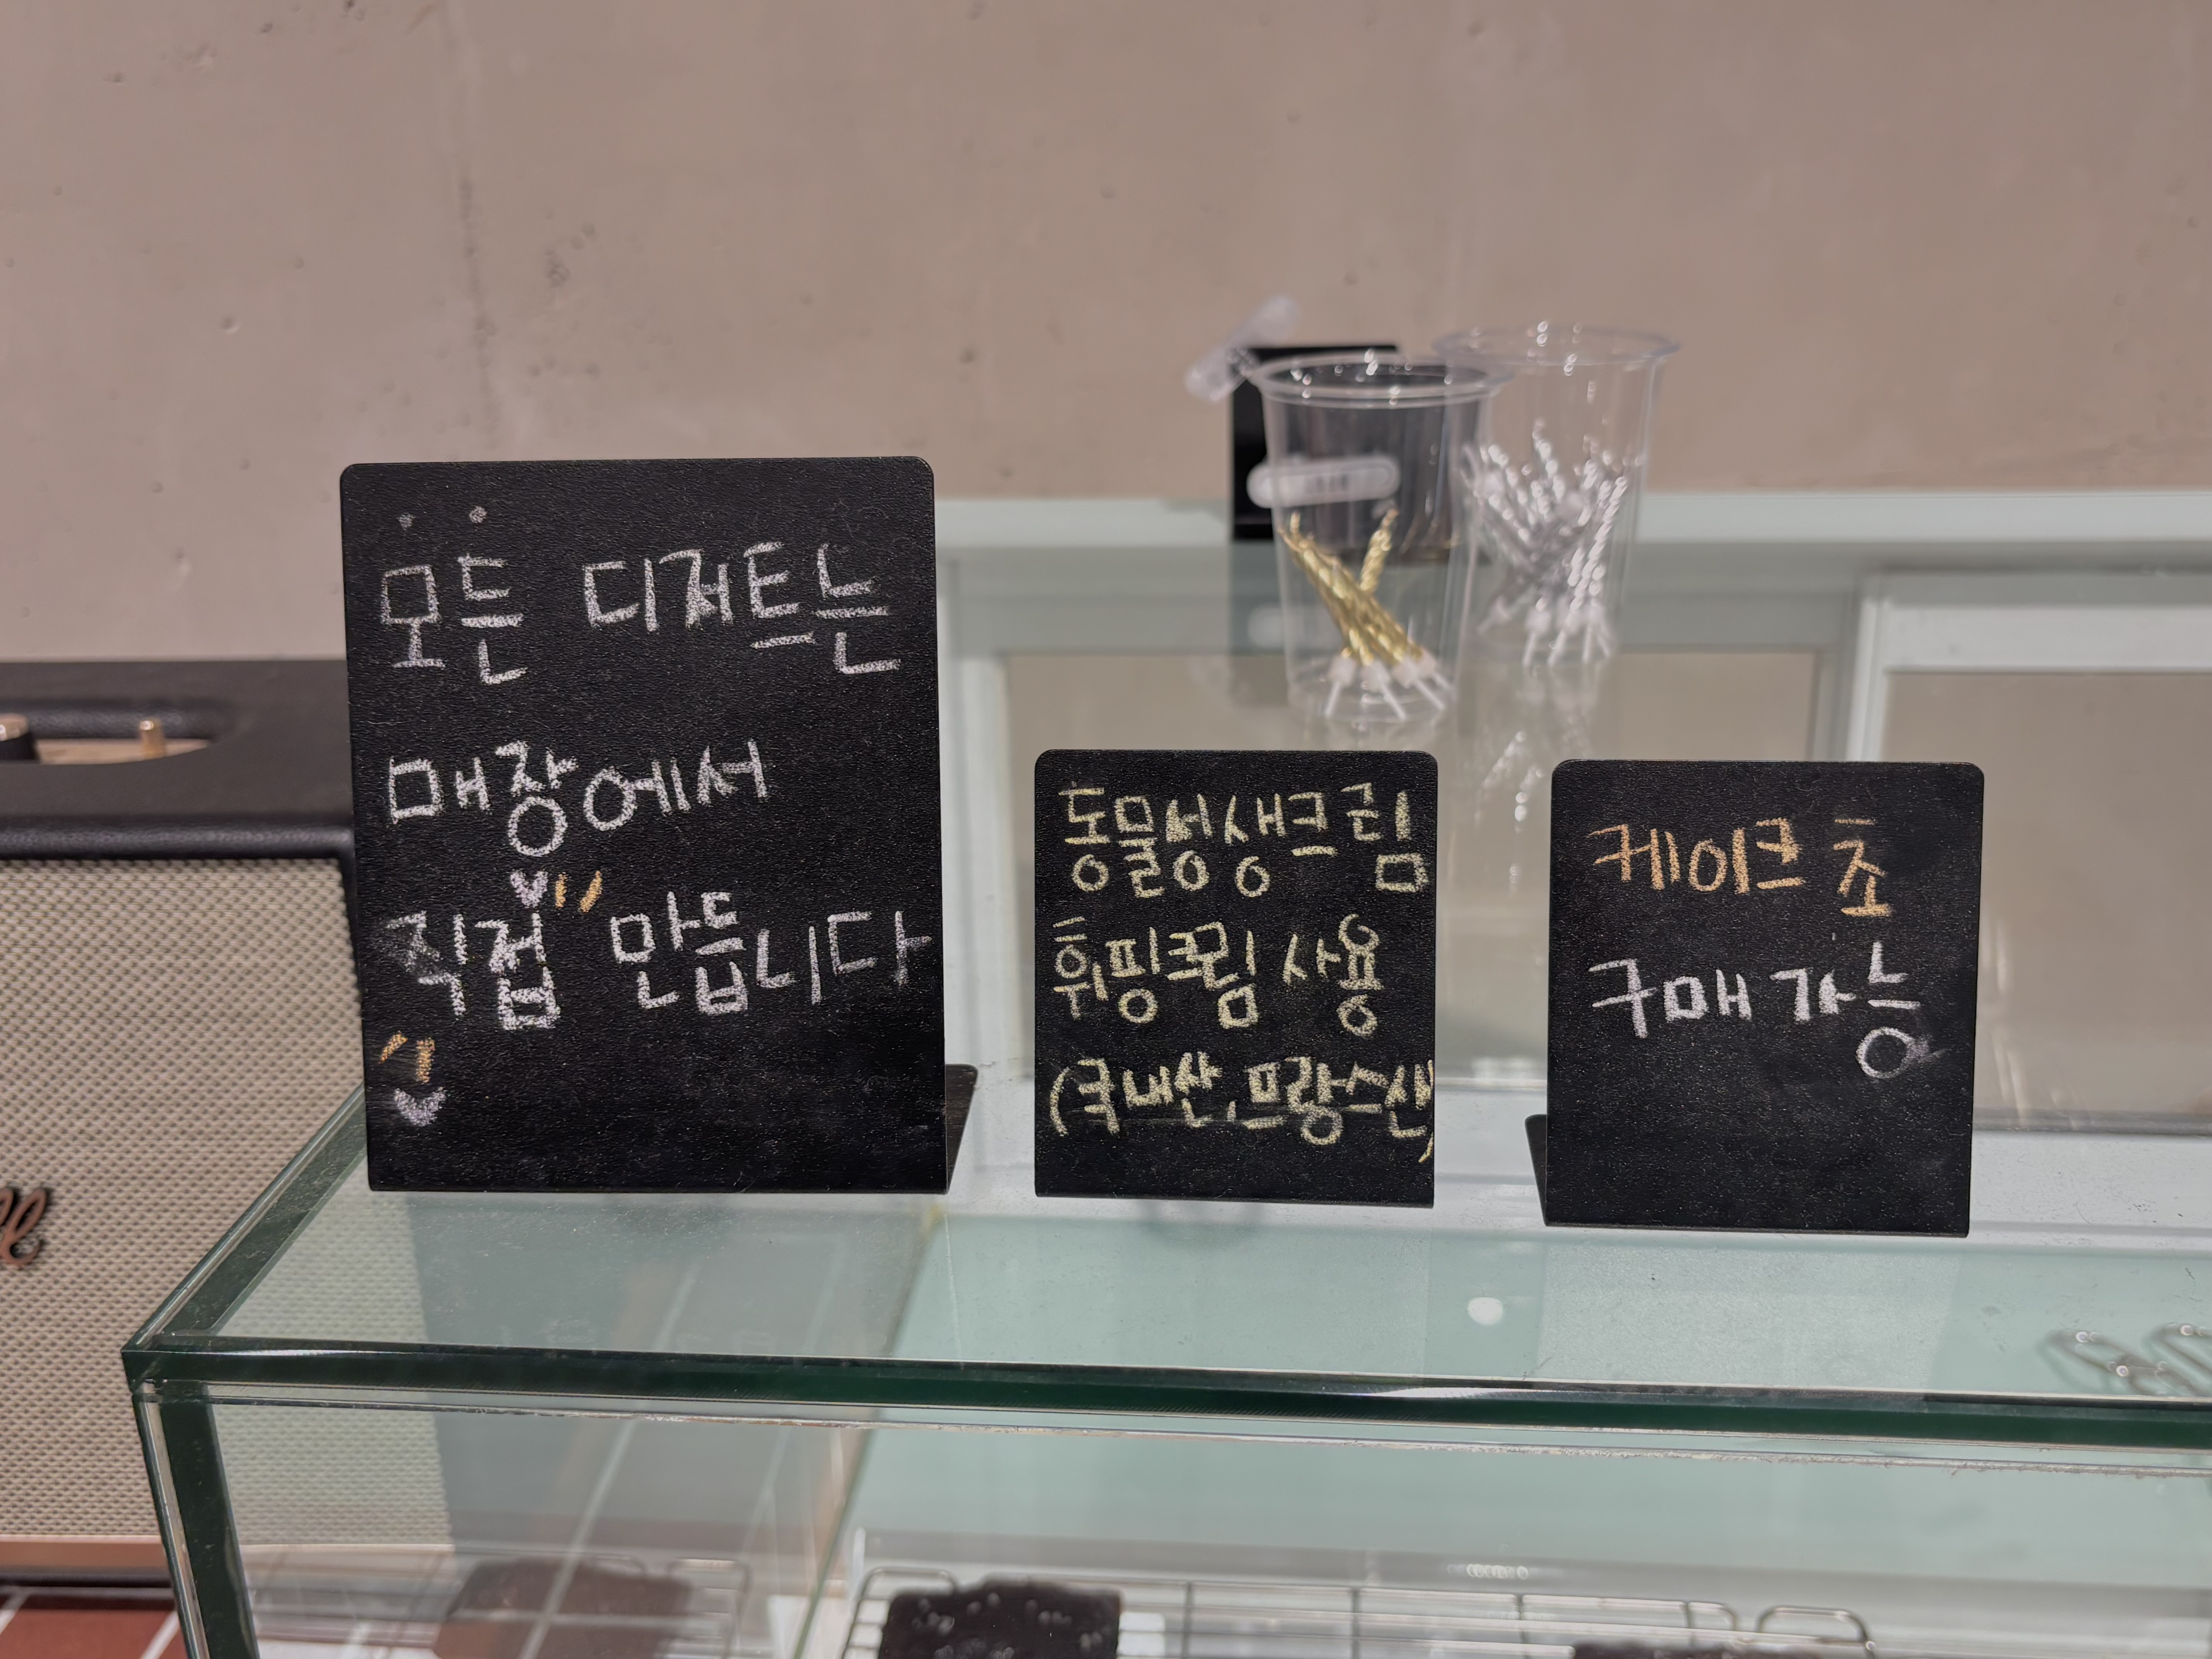 모든 디저트는
매장에서
직접 만듭니다
동물성생크림
휘핑크림 사용
(국내산, 프랑스산)
케이크 초
구매 가능